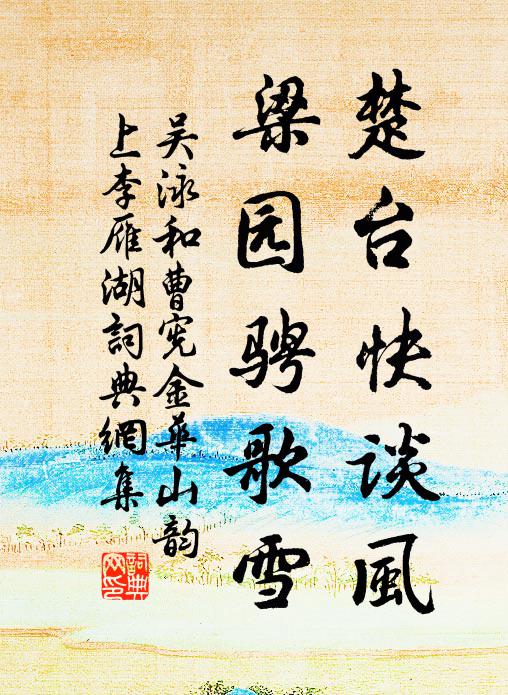 楚台快谈風
梁园骋歌雪
吴泳和曹宪金華山韵
上李雁湖詞典網集
詞典网印